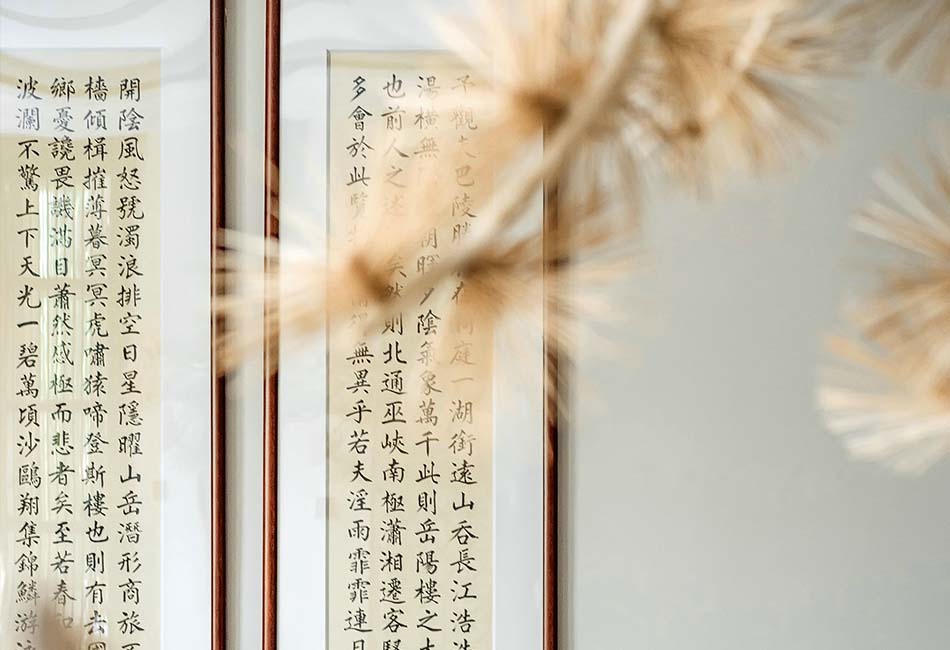 予觀夫巴陵勝庭一湖銜遠山吞長江浩浩
湯橫無朝暉夕陰氣象萬千此則岳陽樓之大
也前人之述矣然則北通巫峽南極瀟湘遷客
多會於此覽得無異乎若夫淫雨霏霏連
開陰風怒號濁浪排空日星隱曜山岳潛形商旅
檣傾楫摧薄暮冥冥虎嘯猿啼登斯樓也則有去國
鄉憂讒畏譏滿目蕭然感極而悲者矣至若春和
波瀾不驚上下天光一碧萬頃沙鷗翔集錦鱗游